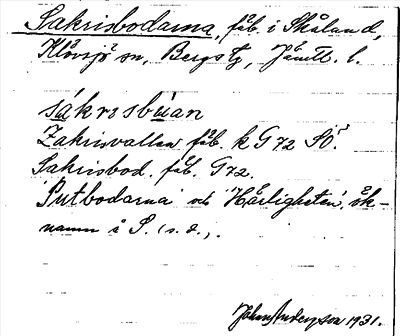 Sakrisbodarna, fåb. i Skåland,
Klövsjö sn, Bergs tg, Jämtl. l.
sákrisbúan
Zakrisvallen fåb. k G72 SÖ.
Sakrisbod. fåb. G72.
'Putbodarna' och 'Härligheten', ök-
namn å S. (s. d.).
Johan Anderson 1931.